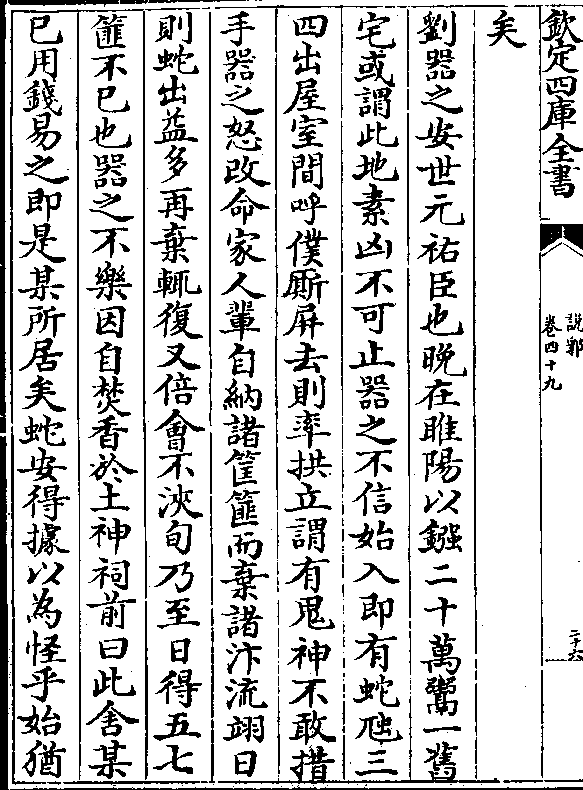 欽定四庫全書
說郛
卷四十九
二十六
矣
劉器之安世元祐臣也晚在睢陽以鏹二十萬鬻一舊
宅或謂此地素凶不可止器之不信始入即有蛇虺三
四出屋室間呼僕厮屏去則率拱立謂有鬼神不敢措
手器之怒改命家人輩自納諸筐篚而棄諸汴流翊日
則蛇出益多再棄輒復又倍會不浹旬乃至日得五七
篚不已也器之不樂因自焚香於土神祠前曰此舍某
已用錢易之即是某所居矣蛇安得據以為怪乎始猶